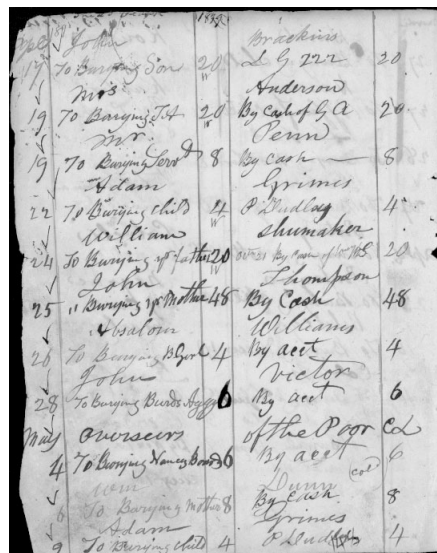 1839
John Brackins
17 To Burying Son 20 L G 222 20
Mrs Anderson
19 To Burying 20 By Cash of G A 20
Mr Penn
19 To Burying Servt 8 By Cash 8
Adam Grimes
22 To Burying Child 4 P Dudley 4
William Shumaker
24 To Burying father 20 By Cash 20
John Thompson
25 " Burying Mother 48 By Cash 48
Absalom Williams
26 To Burying 4 By acct 4
John Victor
28 To Burying 6 By acct 6
May Overseers of the Poor
4 To Burying Nancy 6 By acct 6
col
Wm Dunn
6 To Burying Mother 8 By Cash 8
Adam Grimes
9 To Burying Child 4 P Dudley 4